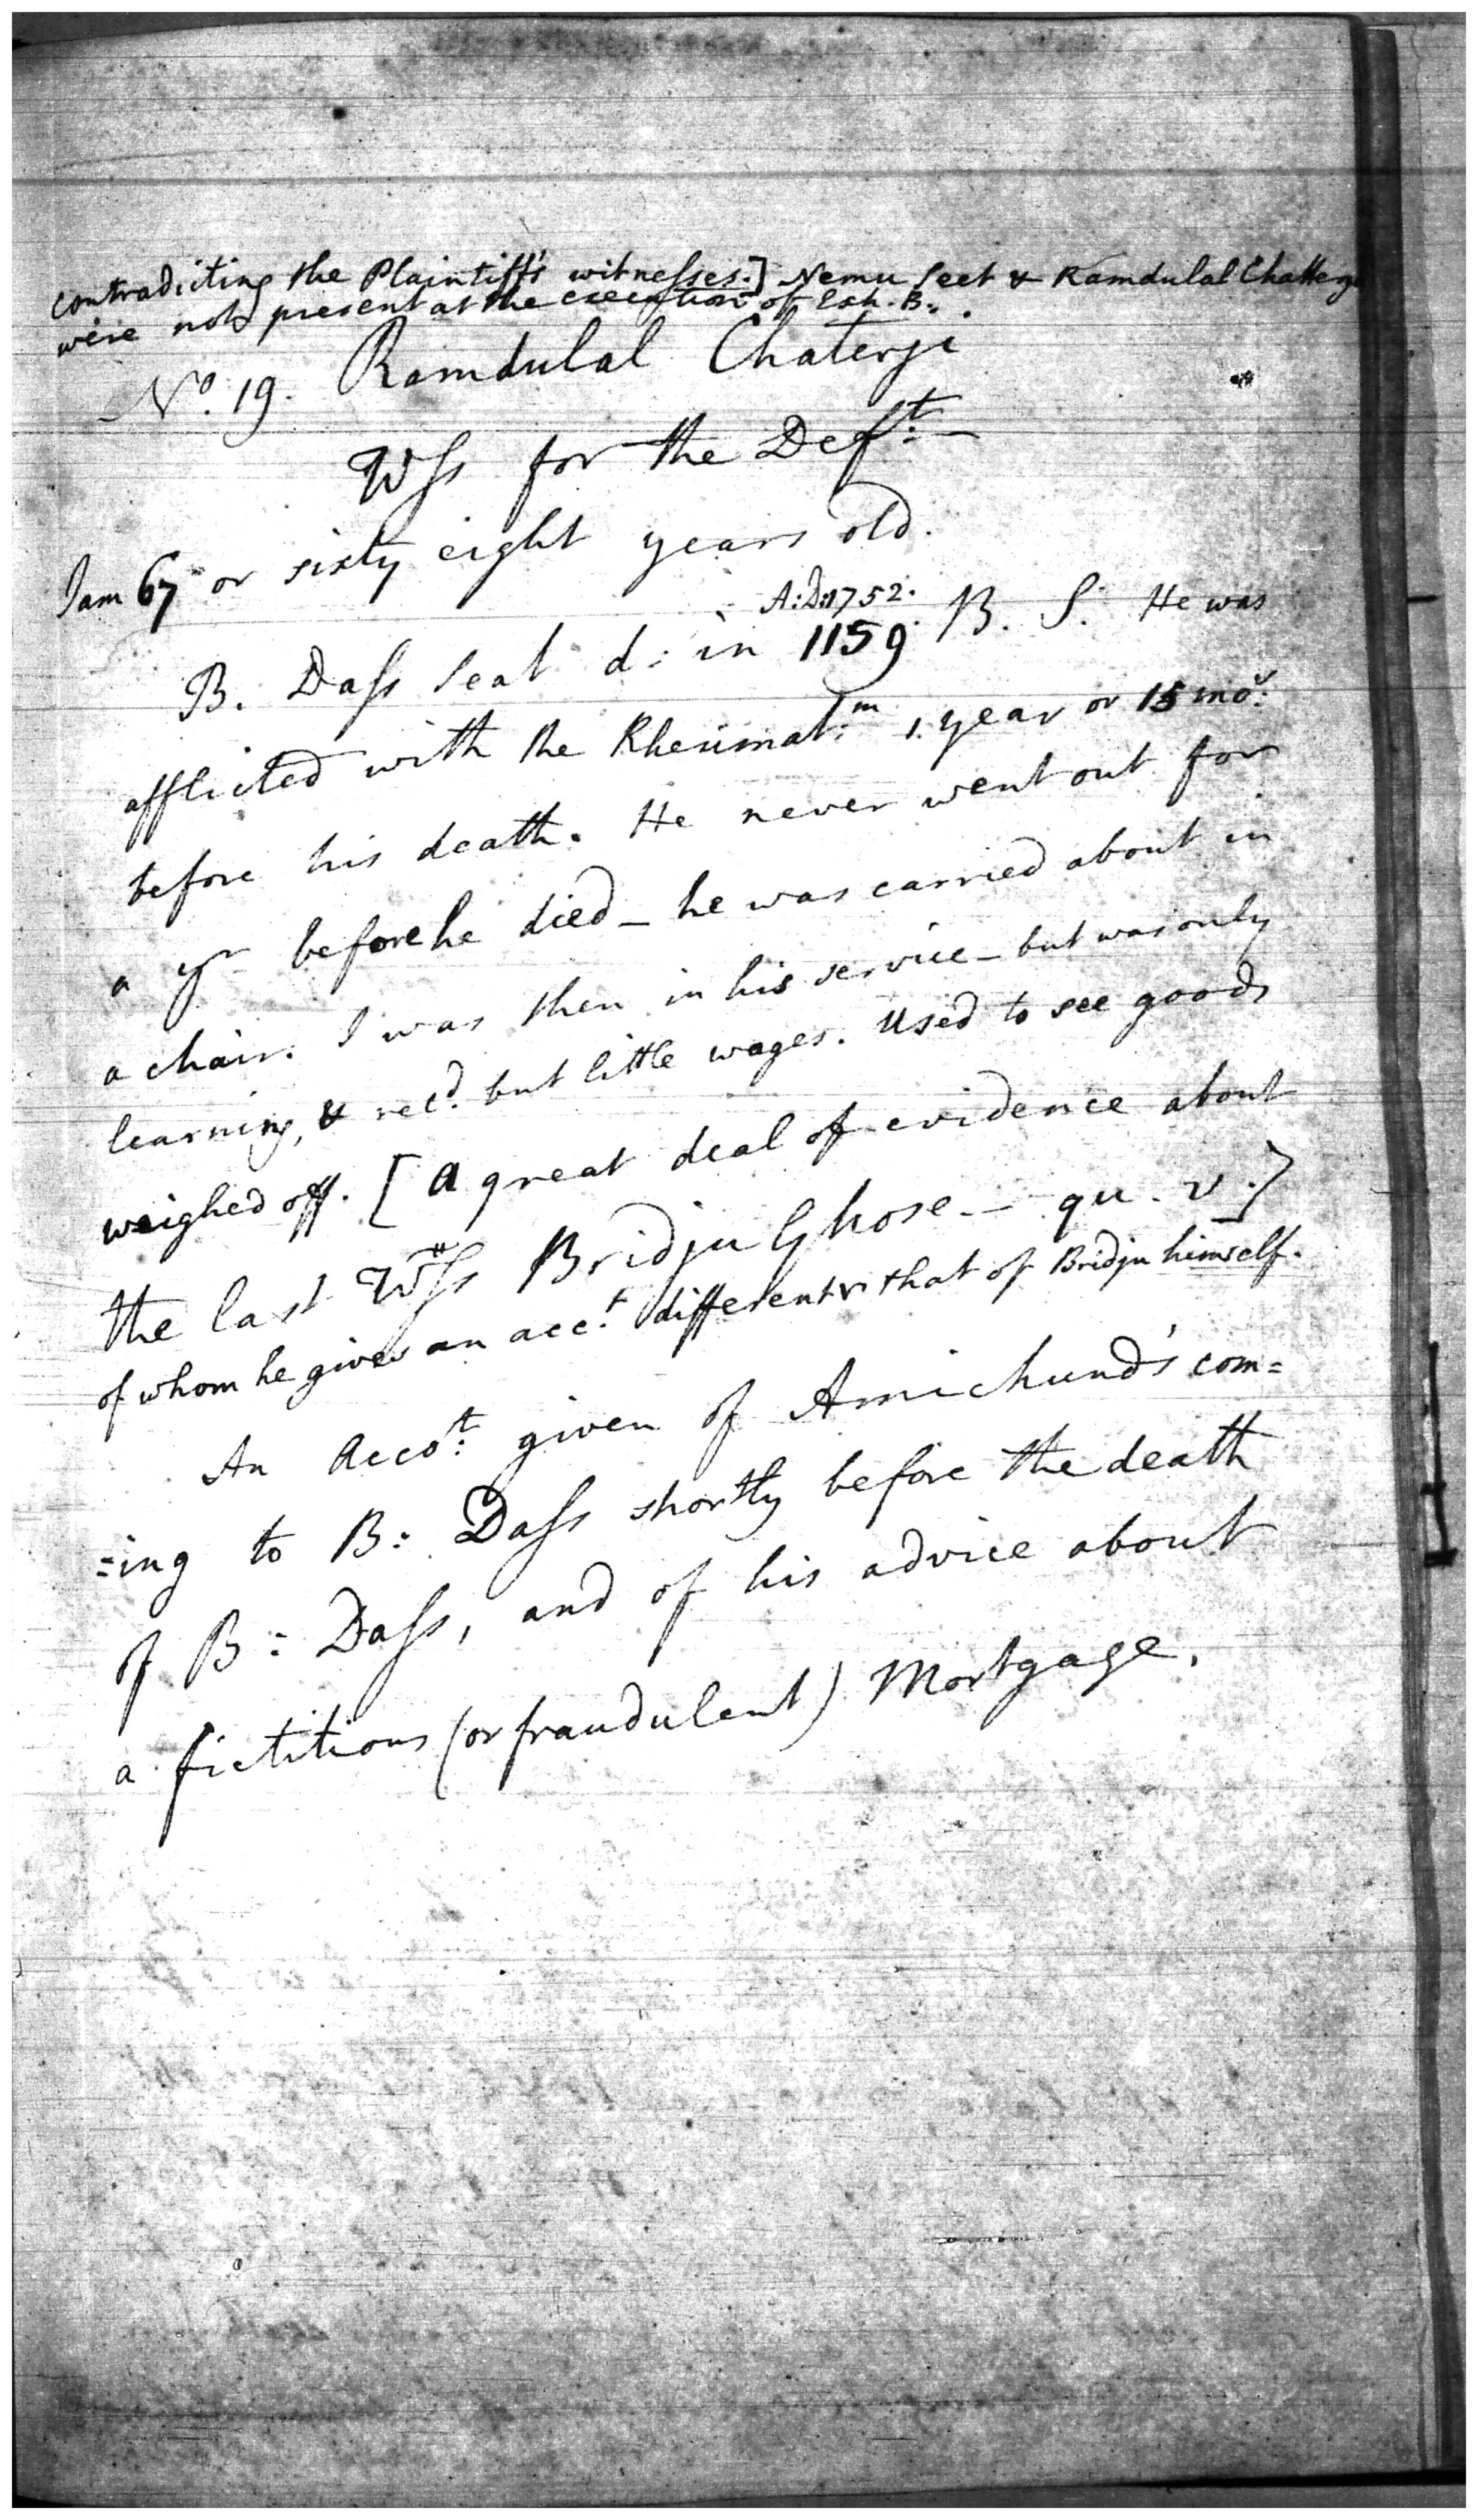 contradicting the Plaintiff's witnesses.] Nemu Seet & Ramdulal Chatterge
were not present at the execution of Exh. B.
No. 19. Ramdulal Chaterje
Wss for the Deft:
I am 67 or sixty eight years old.
A:D:1752.
B. Dass Seat d: in 1159. B. S. He was
afflicted with the Rheumat:m 1. year or 15 mos:
before his death. He never went out for
a yr before he died – he was carried about in
a chair. I was then in his service – but was only
learning, & recd. but little wages. Used to see goods
weighed off. [A great deal of evidence about
the last Wss Bridju Ghose – qu. v.]
of whom he gives an acct. different fr that of Bridju himself.
An Accot: given of Amichund's com=
=ing to B: Dass shortly before the death
of B: Dass, and of his advice about
a fictitious (or fraudulent) Mortgage.